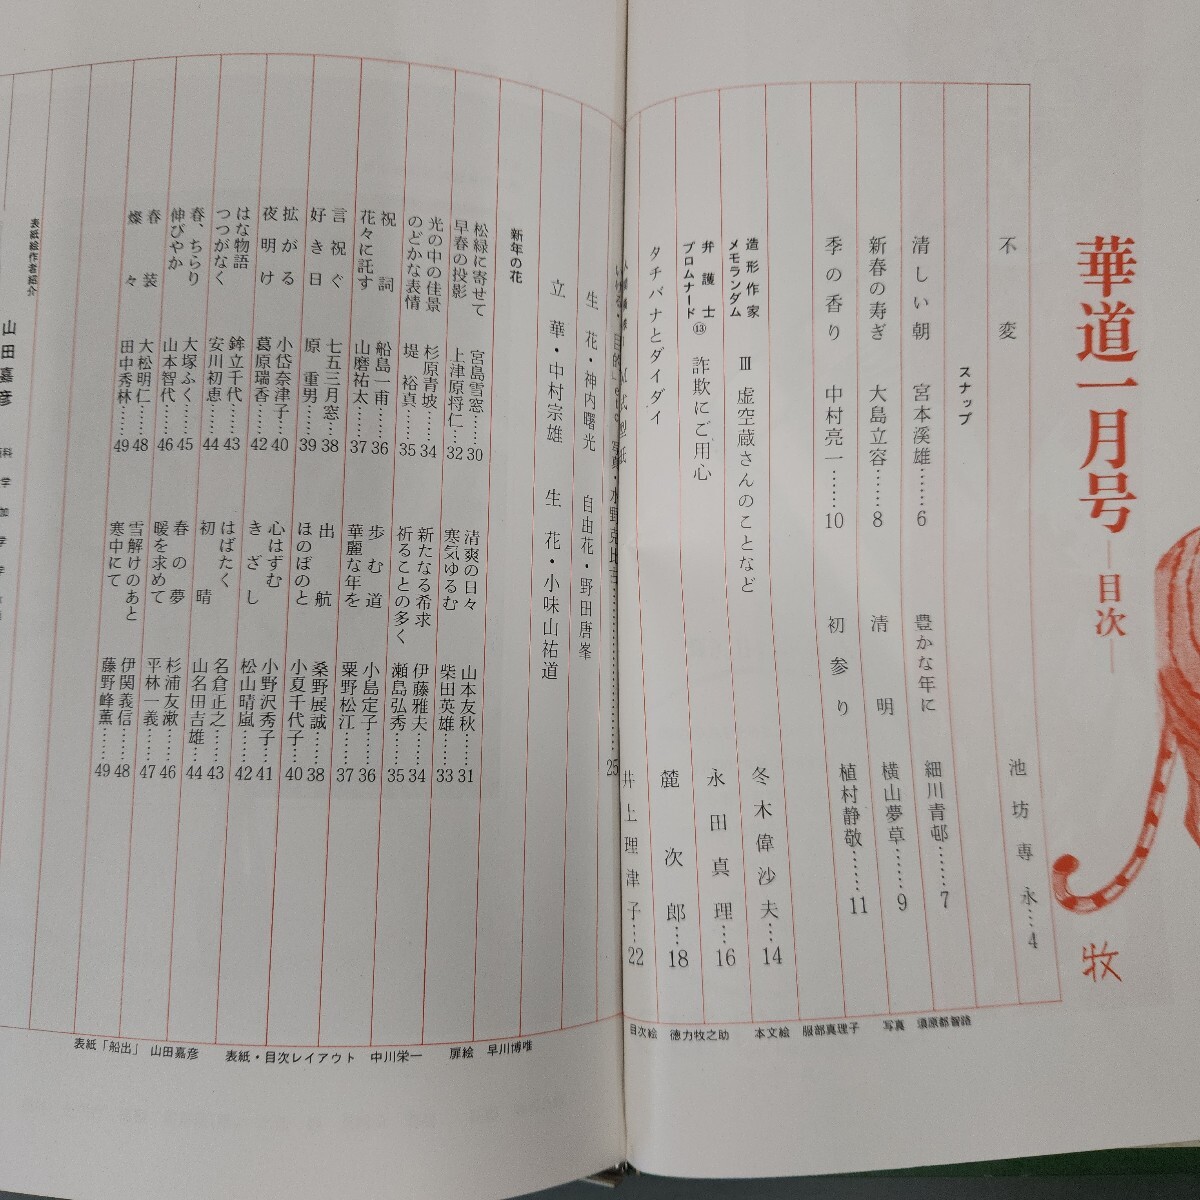 華道一月号
―目次―
牧
不変 池坊専永…4
スナップ
清しい朝 宮本溪雄……6
豊かな年に 細川青邨……7
新春の寿ぎ 大島立容……8
清明 横山夢草……9
季の香り 中村亮一……10
初参り 植村静敬……11
造形作家
メモランダム Ⅲ 虚空蔵さんのことなど 冬木偉沙夫…14
弁護士
プロムナード ⑬ 詐欺にご用心 永田真理…16
タチバナとダイダイ 麓次郎…18
井上理津子…22
25
生花・神内曙光 自由花・野田唐峯
立華・中村宗雄 生花・小味山祐道
新年の花
松緑に寄せて 宮島雪窓……30
清爽の日々 山本友秋……31
早春の投影 上津原将仁…32
寒気ゆるむ 柴田英雄……33
光の中の佳景 杉原青坡……34
新たなる希求 伊藤雅夫……34
のどかな表情 堤裕真……35
祈ることの多く 瀬島弘秀……35
祝詞 船島一甫……36
歩む道 小島定子……36
花々に託す 山磨祐太……37
華麗な年を 粟野松江……37
言祝ぐ 七五三月窓…38
出航 桑野展誠……38
好き日 原重男……39
ほのぼのと 小夏千代子…40
拡がる 小岱奈津子…40
心はずむ 小野沢秀子…41
夜明け 葛原瑞香……42
きざし 松山晴嵐……42
はな物語 鉾立千代……43
はばたく 名倉正之……43
つつがなく 安川初恵……44
初晴 山名田吉雄…44
春、ちらり 大塚ふく……45
春の夢 杉浦友漱……46
伸びやか 山本智代……46
暖を求めて 平林一義……47
春装 大松明仁……48
雪解けのあと 伊関義信……48
燦々 田中秀林……49
寒中にて 藤野峰薫……49
表紙絵作者紹介
山田嘉彦
目次絵 徳力牧之助 本文絵 服部真理子 写真 須原都智路
表紙「船出」 山田嘉彦 表紙・目次レイアウト 中川栄一 扉絵 早川博唯